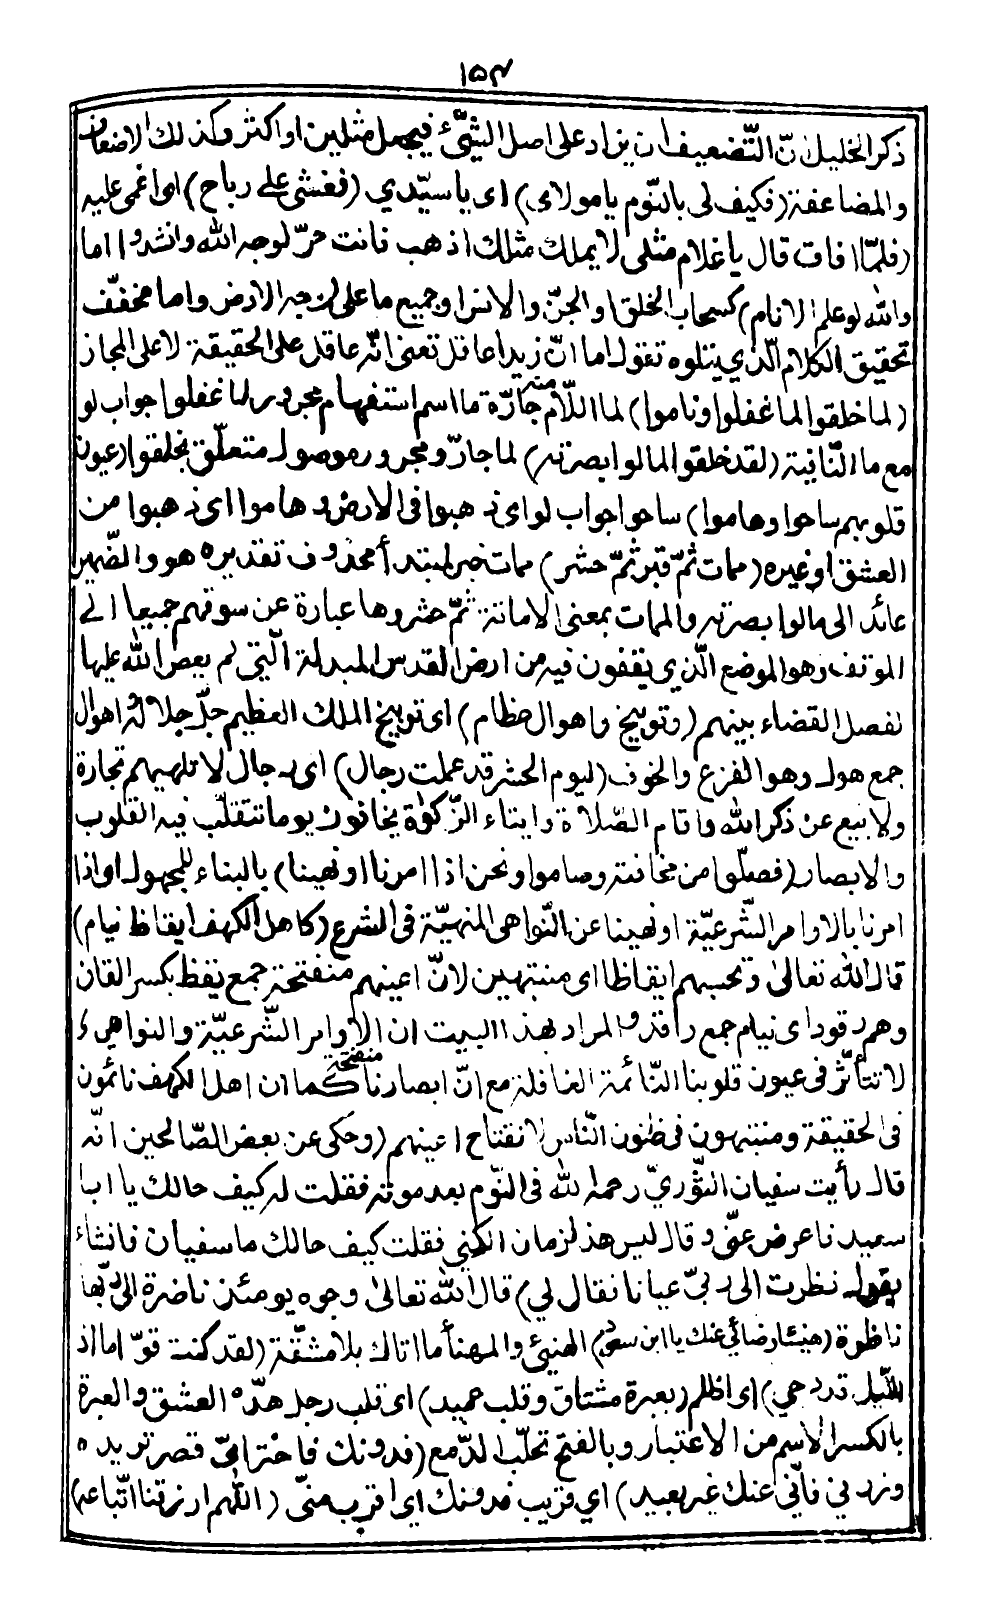 ١٥٣
ذكر الخليل انّ التّضعيف ان يزاد على اصل الشّيء فيجعل مثلين او اكثر وكذلك الاضعاف
والمضاعفة (فكيف لى بالنّوم يا مولاى) اى يا سيّدي (فغشى على رباح) اى اغمى عليه
(فلمّا افاق قال يا غلام مثلى لا يملك مثلك اذهب فانت حرّ لوجه الله وانشدوا اما
والله لو علم الانام) كسحاب الخلق او الجنّ والانس او جميع ما على وجه الارض واما مخفّف
تحقيق الكلام الّذي يتلوه تقول اما انّ زيدا عاقل تعنى انّه عاقل على الحقيقة لا على المجاز
(لما خلقوا لما غفلوا وناموا) لما اللّام جارّة ما اسم استفهام مجرور لما غفلوا جواب لو
مع ما الثّانية (لقد خلقوا لما لو ابصرته) لما جارّ ومجرور موصول متعلّق بخلقوا (عيون
قلوبهم ساحوا وهاموا) ساحوا جواب لو اى ذهبوا فى الارض وهاموا اى ذهبوا من
العشق او غيره (ممات ثمّ قبر ثمّ حشر) ممات خبر لمبتدأ محذوف تقديره هو والضّمير
عائد الى ما لو ابصرته والممات بمعنى الاماتة ثمّ حشر وها عبارة عن سوقهم جميعا الى
الموقف وهو الموضع الّذي يقفون فيه من ارض القدس المبدلة الّتي لم يعص الله عليها
لفصل القضاء بينهم (وتوبيخ واهوال عظام) اى توبيخ الملك العظيم جلّ جلاله اهوال
جمع هول وهو الفزع والخوف (ليوم الحشر قد عملت رجال) اى رجال لا تلهيهم تجارة
ولا بيع عن ذكر الله واقام الصّلاة وايتاء الزّكوٰة يخافون يوما تتقلّب فيه القلوب
والابصار (فصلّوا من مخافته وصاموا ونحن اذا امرنا او نهينا) بالبناء للمجهول اى اذا
امرنا بالاوامر الشّرعيّة او نهينا عن النّواهى المنهيّة فى الشرع (كاهل الكهف ايقاظ نيام)
قال الله تعالىٰ وتحسبهم ايقاظا اى منتبهين لانّ اعينهم منفتحة جمع يقظ بكسر القاف
وهم رقود اى نيام جمع راقد والمراد بهذا البيت ان الاوامر الشّرعيّة والنواهى
لا تتأثّر فى عيون قلوبنا النّائمة الغافلة مع انّ ابصارنا منفتحة كما ان اهل الكهف نائمون
فى الحقيقة ومنتبهون فى ظنون النّاس لانفتاح اعينهم (وحكى عن بعض الصّالحين انّه
قال رأيت سفيان الثّوريّ رحمه الله فى النّوم بعد موته فقلت له كيف حالك يا ابا
سعيد فاعرض عنّى وقال ليس هذا زمان الكنى فقلت كيف حالك يا سفيان فانشاء
يقول نظرت الى ربىّ عيانا فقال لي) قال الله تعالىٰ وجوه يومئذ ناضرة الى ربّها
ناظرة (هنيئا رضائي عنك يا ابن سعيد) الهنيئ والمهنأ ما اتاك بلا مشقّة (لقد كنت قوّاما اذ
اللّيل قد دجي) اى اظلم (بعبرة مشتاق وقلب عميد) اى قلب رجل هدّه العشق والعبرة
بالكسر الاسم من الاعتبار وبالفتح تحلّب الدّمع (فدونك فاختر اىّ قصر تريده
وزرني فانّي عنك غير بعيد) اي قريب فدونك اى اقرب منّى (اللّهم ارزقنا اتّباعه)